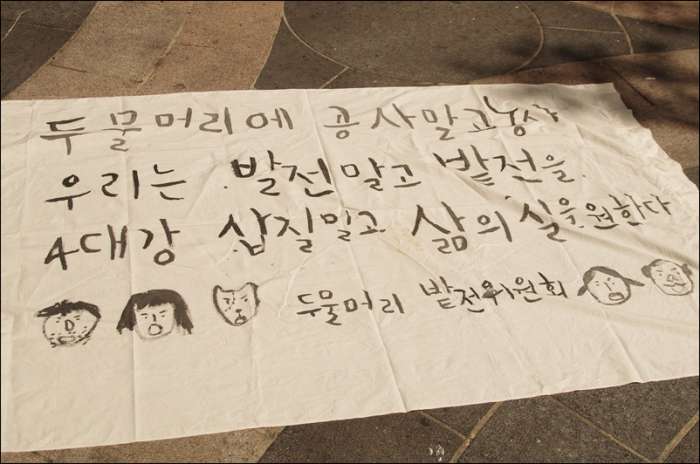 두물머리에 공사말고농사
우리는 발전말고 밭전을
4대강 삽질말고 삶의 질을원한다
두물머리 밭전위원회